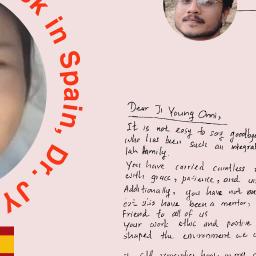 k in Spain, Dr. JY
Dear Ji Young Onni,
It is not easy to say goodbye
who has been such an integral
lab family.
You have carried countless
with grace, patience, and
Additionally, you have not
have been a mentor,
Friend to all of us
your work ethic and positive
shaped the environment we